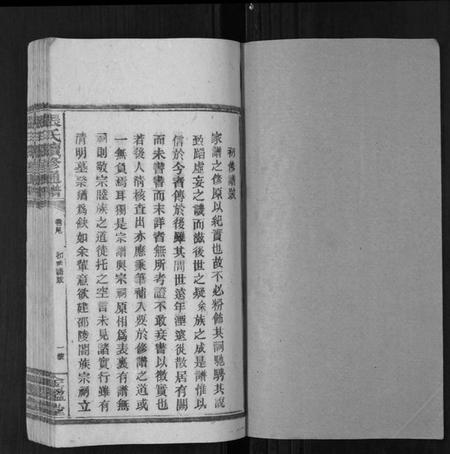 初修譜跋
家譜之修原以紀實也故不必粉飾其詞馳騁其說
致蹈虛妄之譏而滋後世之疑矣族之成是譜惟以
信於今者傳於後雖其間世遠年湮遷徙散居有闕
而未書書而未詳者無所考證不敢妄書以徵實也
若後人清核查出亦應秉筆補入要於修譜之道或
一無負焉耳獨是宗譜與宗祠原相為表裏有譜無
祠則敬宗睦族之道徒托之空言未見諸實行雖有
清明墓祭猶為缺如余輩意欲建邵陵闔族宗祠立
張氏續修通譜
卷尾
初修譜跋
一